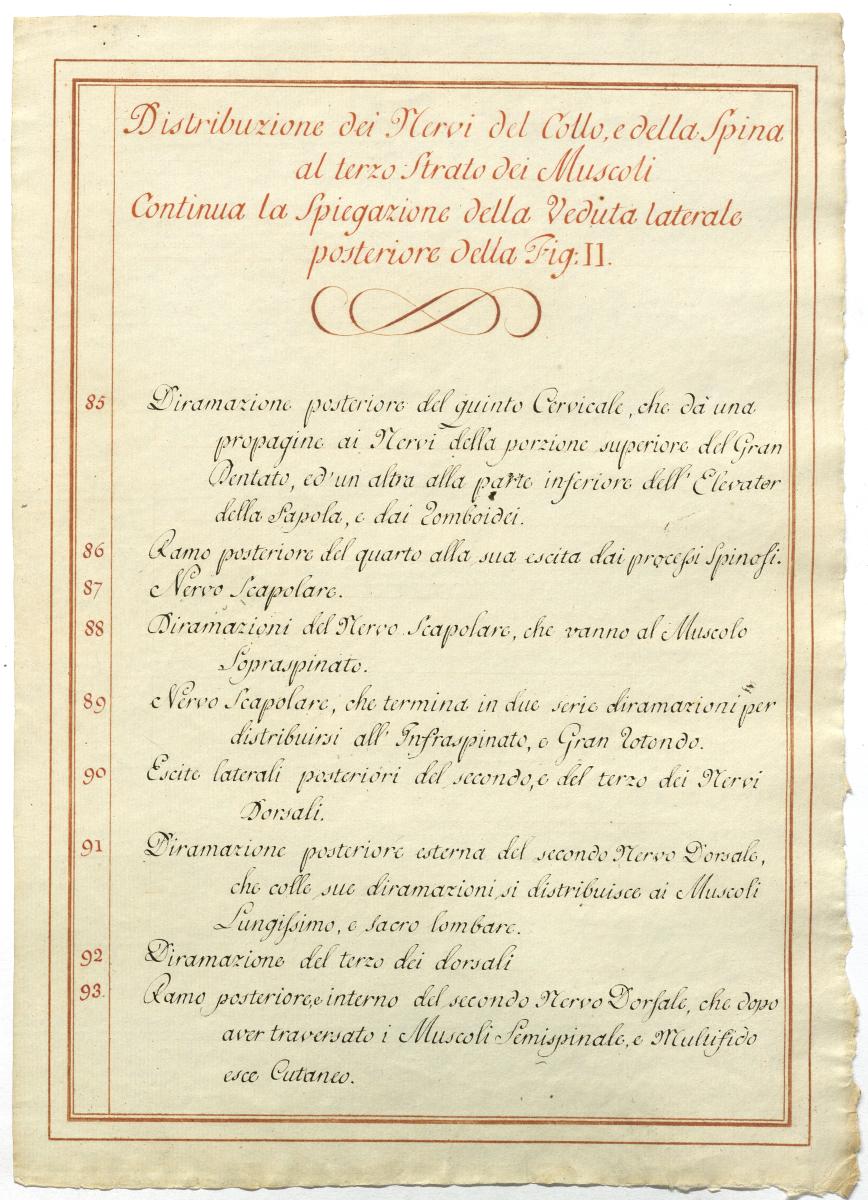 Distribuzione dei Nervi del Collo, e della Spina
al terzo Strato dei Muscoli
Continua la Spiegazione della Veduta laterale
posteriore della Fig: II.
85 Diramazione posteriore del quinto Cervicale, che dà una
propagine ai Nervi della porzione superiore del Gran
Dentato, ed'un altra alla parte inferiore dell' Elevator
della Papola, e dai Romboidei.
86 Ramo posteriore del quarto alla sua escita dai processi Spinosi.
87 Nervo Scapolare.
88 Diramazioni del Nervo Scapolare, che vanno al Muscolo
Sopraspinato.
89 Nervo Scapolare, che termina in due serie diramazioni per
distribuirsi all' Infraspinato, e Gran Rotondo.
90 Escite laterali posteriori del secondo, e del terzo dei Nervi
Dorsali.
91 Diramazione posteriore esterna del secondo Nervo Dorsale,
che colle sue diramazioni si distribuisce ai Muscoli
Lungissimo, e sacro lombare.
92 Diramazione del terzo dei dorsali
93. Ramo posteriore, e interno del secondo Nervo Dorsale, che dopo
aver traversato i Muscoli Semispinale, e Multifido
esce Cutaneo.